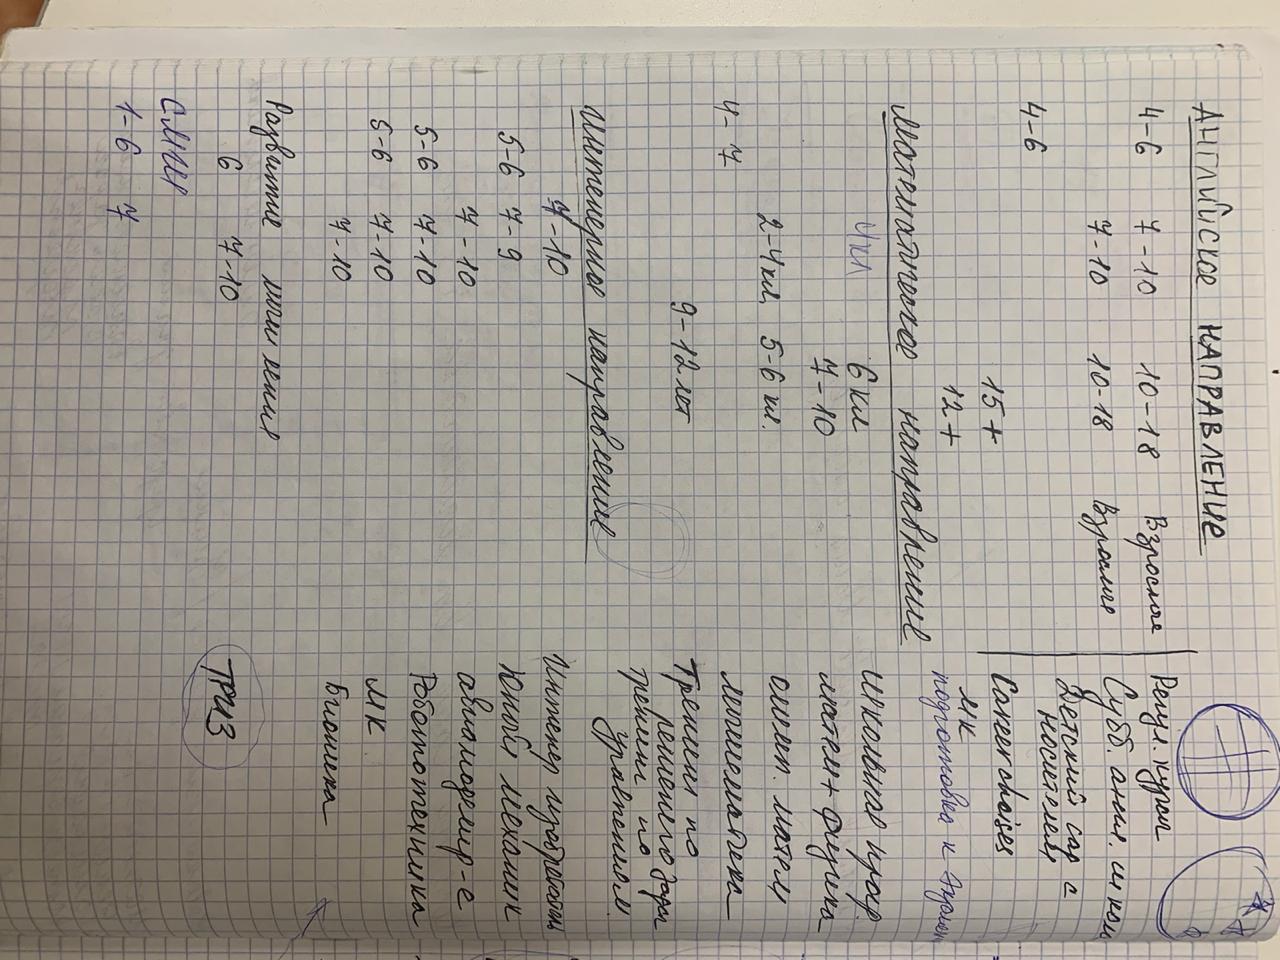 АНГЛИЙСКОЕ НАПРАВЛЕНИЕ
4-6 7-10 10-18 Взрослые Регул. курсы
7-10 10-18 Взрослые Субб. англ. школ
4-6 Детский сад с
носителем
15+ Career choises
12+ МК
подготовка к
Математическое направление
4кл 6 кл Школьная прогр
7-10 матем + физика
2-4 кл, 5-6 кл. олимп. матем
4-7 мышематека
9-12 лет Тренинг по
решению задач
тренинг по
уравнениям
Инженерное направление
7-10 Инженер изобретат
5-6 7-9 Юный механик
7-10 авиамодегир-е
5-6 7-10 Робототехника
5-6 7-10 МК
7-10 Бионика
Развитие мышления
6 7-10 ТРИЗ
СМИЫ
1-6 7